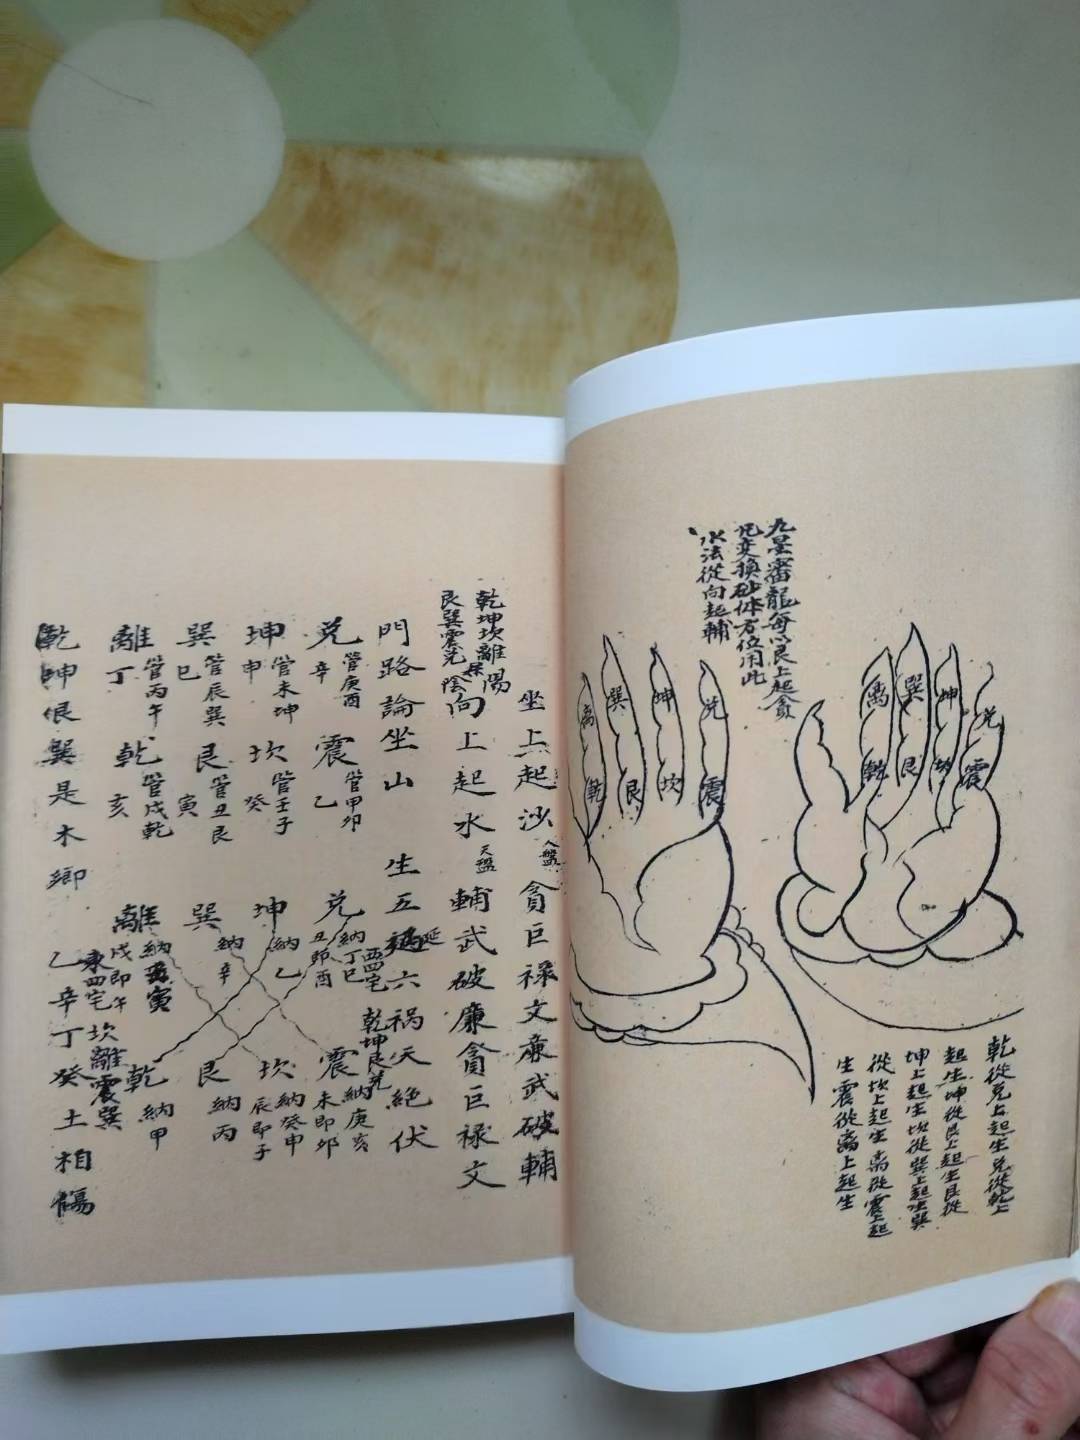 九星審龍每以艮上起貪
凡变換砂体方位用此
水法從向起輔
兌
坤
巽
离
震
坎
艮
乾
兌
坤
巽
离
震
坎
艮
乾
乾從兌上起生兌從乾上
起生坤從艮上起生艮從
坤上起生坎從巽上起生巽
從坎上起生离從震上起
生震從离上起生
坐上起沙人盤貪巨祿文廉武破輔
乾坤坎離陽
艮巽震兌陰
向上起水天盤輔武破廉貪巨祿文
門路論坐山
生五延六祸天絕伏
西四宅
乾坤艮兌
兌管庚酉辛
震管甲卯乙
坤管未坤申
坎管壬子癸
巽管辰巽巳
艮管丑艮寅
離管丙午丁
乾管戌乾亥
兌納丁巳丑即酉
震納庚亥未即卯
坤納乙
坎納癸申辰即子
巽納辛
艮納丙
離納壬寅戌即午
乾納甲
東四宅
坎離震巽
乾坤艮巽是木鄉
乙辛丁癸土相傷